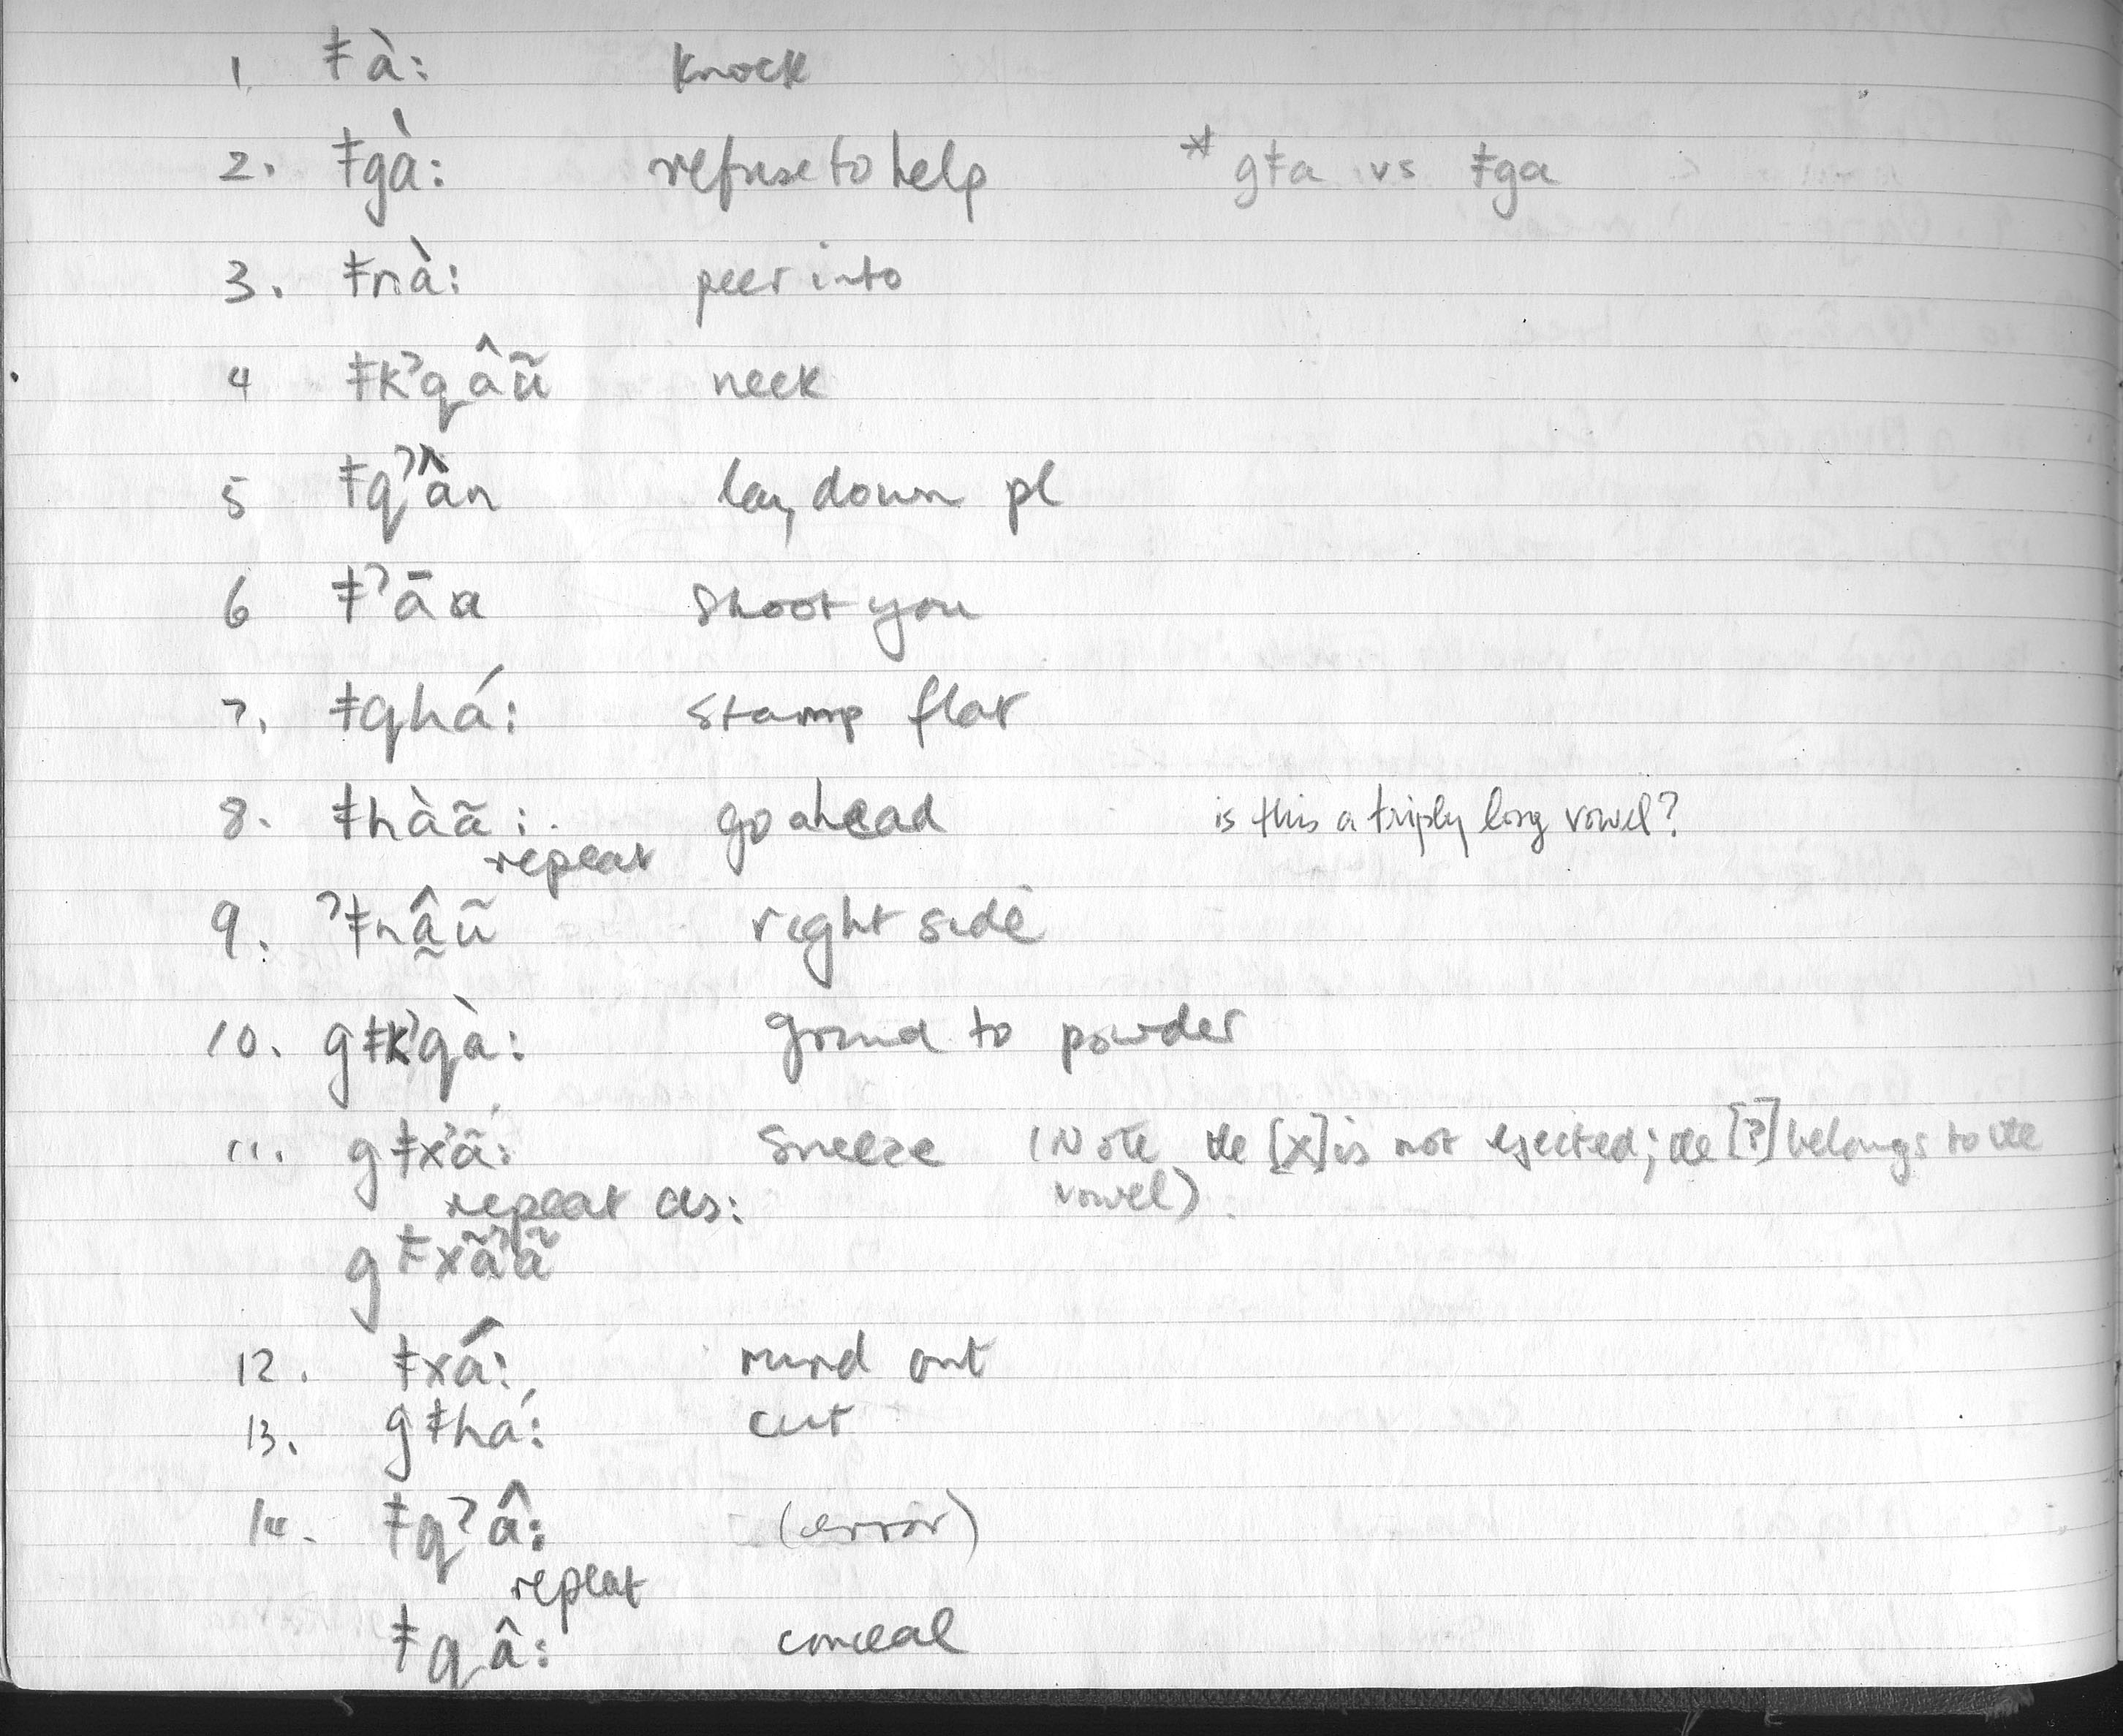 1. ǂà: knock
2. ǂgà: refuse to help * gǂa vs ǂga
3. ǂnà: peer into
4 ǂkˀqâũ neck
5 ǂqˀân lay down pl
6 ǂˀāa shoot you
7. ǂqhá: stamp flat
8. ǂhàã: go ahead is this a triply long vowel?
repeat
9. ˀǂnâ̰ũ right side
10. gǂkˀqà: grind to powder
11. gǂxˀã: sneeze (Note the [x] is not ejected; the [ʔ] belongs to the
repeat as: vowel).
gǂxãˀã
12. ǂxá: out
13. gǂhá: cut
14. ǂqˀâ: (error)
repeat
ǂqâ: conceal